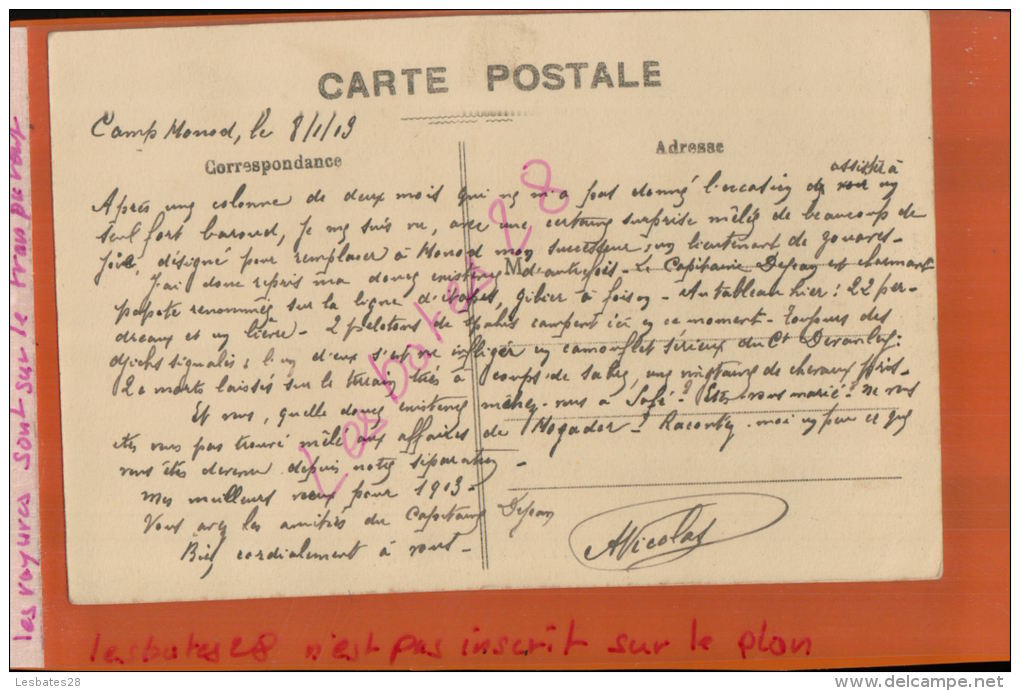 CARTE POSTALE
Camp Monod, le 8/1/13
Correspondance
Adresse
assister à
Après une colonne de deux mois qui ne m'a pas donné l'occasion de voir un
seul fort baroud, je me suis vu, avec une certaine surprise mêlée de beaucoup de
joie, désigné pour remplacer à Monod mon successeur, un lieutenant de zouaves.
M
J'ai donc repris ma douce existence d'autrefois - Le Capitaine Dejean est charmant
popote renommée sur la ligne d'étapes, gibier à foison - Au tableau hier : 22 per-
dreaux et un lièvre - 2 pelotons de spahis campent ici en ce moment - Toujours des
djichs signalés ; l'un d'eux s'est vu infliger un camouflet sérieux du Ct :
20 morts laissés sur le terrain tués à coups de sabre, une vingtaine de chevaux pris -
Et vous, quelle douce existence menez-vous à Safi ? Etes vous marié ? Ne vous
etes vous pas trouvé mêlé aux affaires de Mogador ? Racontez-moi un peu ce que
vous êtes devenu depuis notre séparation -
Mes meilleurs vœux pour 1913 -
Vous avez les amitiés du Capitaine Dejean
Bien cordialement à vous -
ANicolas
Lesbates28
les rayures sont sur le transparent
lesbates28 n'est pas inscrit sur le plan
Lesbates28
www.delcampe.net